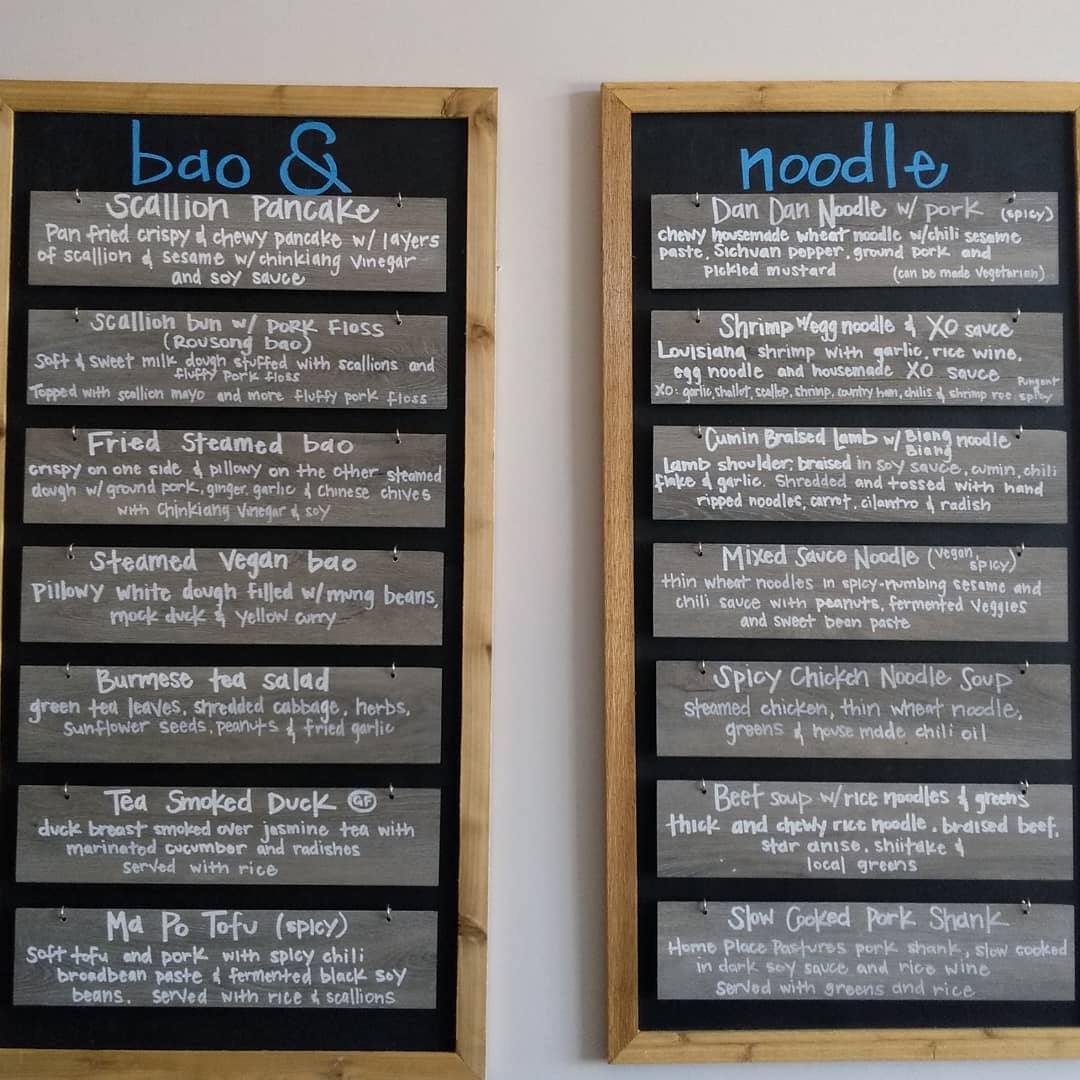 bao &
Scallion Pancake
Pan fried crispy & chewy pancake w/ layers
of scallion & sesame w/ chinkiang vinegar
and soy sauce
Scallion bun w/ Pork Floss
(Rousong bao)
Soft & sweet milk dough stuffed with scallions and
fluffy pork floss
Topped with scallion mayo and more fluffy pork floss
Fried Steamed bao
crispy on one side & pillowy on the other steamed
dough w/ ground pork, ginger, garlic & Chinese chives
with Chinkiang Vinegar & soy
Steamed Vegan bao
Pillowy white dough filled w/ mung beans,
mock duck & yellow curry
Burmese tea salad
green tea leaves, shredded cabbage, herbs,
sunflower seeds, peanuts & fried garlic
Tea Smoked Duck GF
duck breast smoked over jasmine tea with
marinated cucumber and radishes
served with rice
Ma Po Tofu (spicy)
Soft tofu and pork with spicy chili
broadbean paste & fermented black soy
beans. served with rice & scallions
noodle
Dan Dan Noodle w/ pork (spicy)
chewy housemade wheat noodle w/chili sesame
paste, Sichuan pepper, ground pork and
pickled mustard (can be made vegetarian)
Shrimp w/egg noodle & XO sauce
Louisiana shrimp with garlic, rice wine,
egg noodle and housemade XO sauce
XO: garlic, shallot, scallop, shrimp, country ham, chilis & shrimp roe Pungent spicy
Cumin Braised Lamb w/ Biang Biang noodle
Lamb shoulder, braised in soy sauce, cumin, chili
flake & garlic. Shredded and tossed with hand
ripped noodles, carrot, cilantro & radish
Mixed Sauce Noodle (vegan, spicy)
thin wheat noodles in spicy-numbing sesame and
chili sauce with peanuts, fermented veggies
and sweet bean paste
Spicy Chicken Noodle Soup
steamed chicken, thin wheat noodle,
greens & house made chili oil
Beef soup w/rice noodles & greens
thick and chewy rice noodle, braised beef,
star anise, shiitake &
local greens
Slow Cooked Pork Shank
Home Place Pastures pork shank, slow cooked
in dark soy sauce and rice wine
served with greens and rice